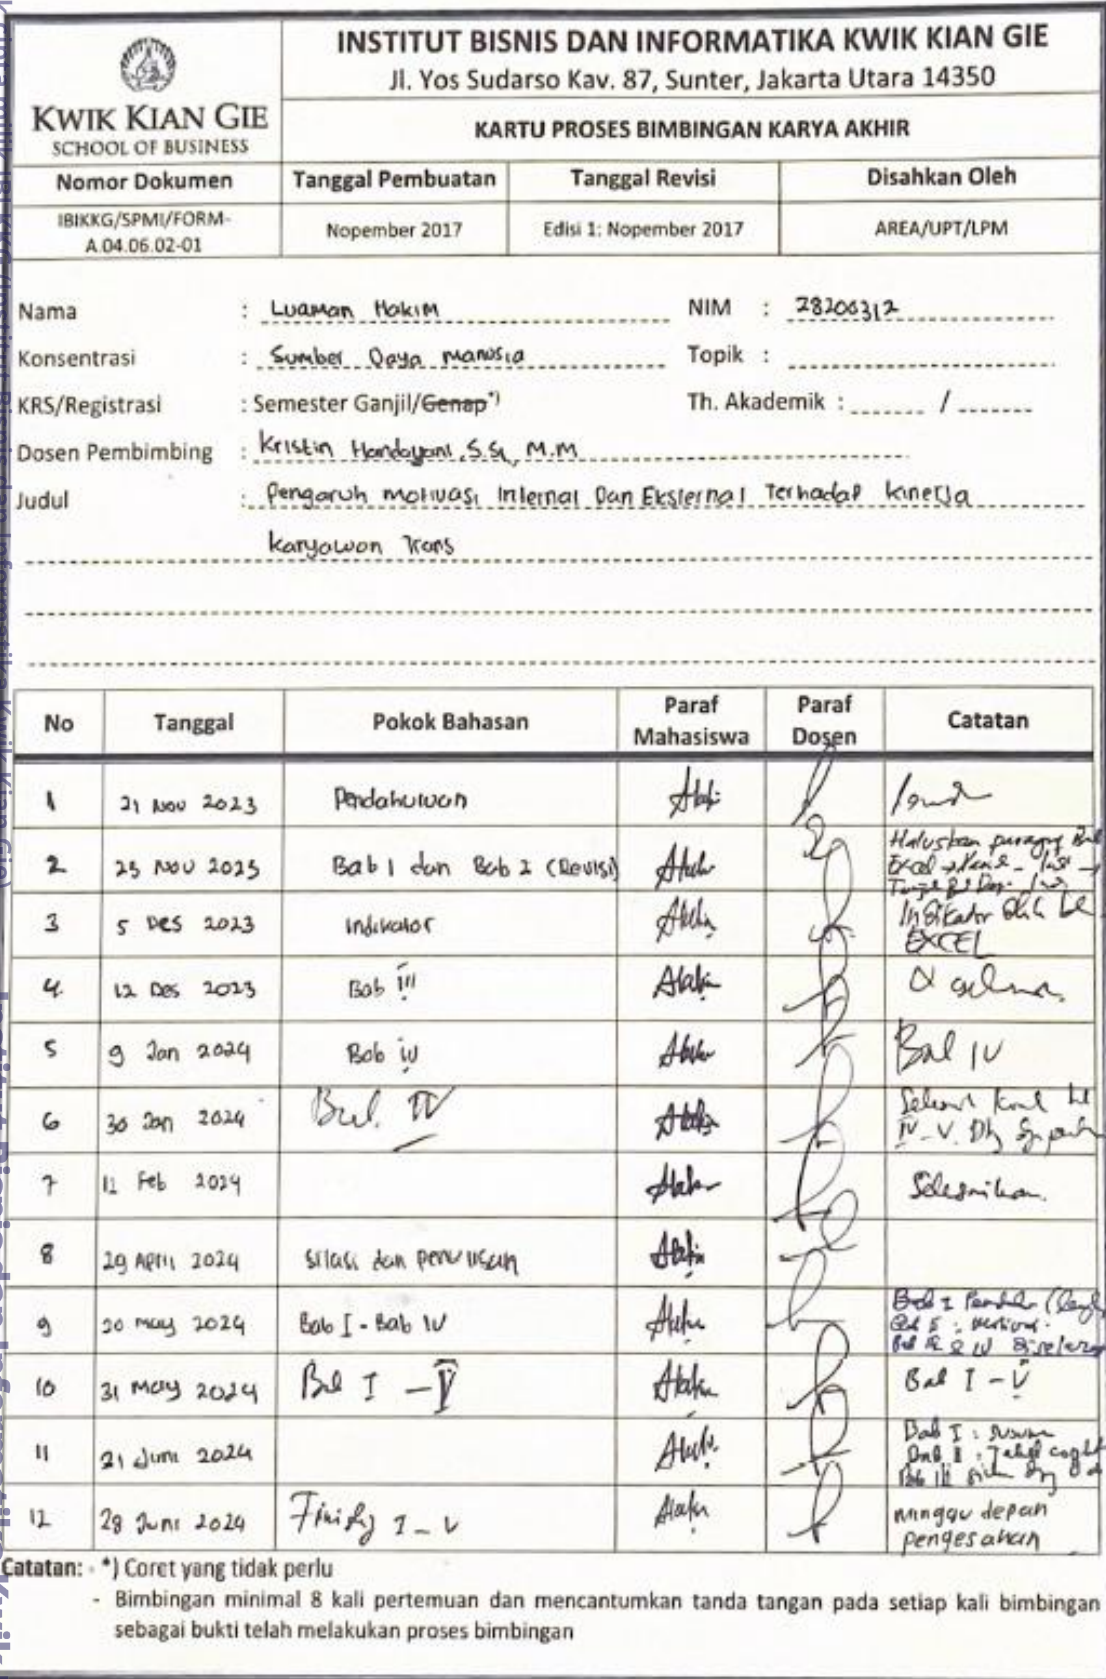 INSTITUT BISNIS DAN INFORMATIKA KWIK KIAN GIE
Jl. Yos Sudarso Kav. 87, Sunter, Jakarta Utara 14350
KWIK KIAN GIE
SCHOOL OF BUSINESS
KARTU PROSES BIMBINGAN KARYA AKHIR
Nomor Dokumen Tanggal Pembuatan Tanggal Revisi Disahkan Oleh
IBIKKG/SPMI/FORM-
A.04.06.02-01 Nopember 2017 Edisi 1: Nopember 2017 AREA/UPT/LPM
Nama : Luqman Hakim NIM : 28206312
Konsentrasi : Sumber Daya Manusia Topik :
KRS/Registrasi : Semester Ganjil/Genap*) Th. Akademik : /
Dosen Pembimbing : Kristin Handayani, S.Si, M.M
Judul : Pengaruh motivasi Internal Dan Eksternal Terhadap Kinerja
Karyawan Trans
No Tanggal Pokok Bahasan Paraf Mahasiswa Paraf Dosen Catatan
1 21 Nov 2023 Pendahuluan
2 23 Nov 2023 Bab 1 dan Bab 2 (Revisi) Haluskan
3 5 Des 2023 Indikator Indikator
EXCEL
4. 12 Des 2023 Bab III
5 9 Jan 2024 Bab IV Bab IV
6 30 Jan 2024 Bab IV
IV - V
7 12 Feb 2024 Selesaikan.
8 29 April 2024 Sitasi dan penulisan
9 20 May 2024 Bab I - Bab IV
10 31 May 2024 Bab I - V Bab I - V
11 21 Juni 2024 Bab I : susun
12 28 Juni 2024 Finishing I - V minggu depan
pengesahan
Catatan: - *) Coret yang tidak perlu
- Bimbingan minimal 8 kali pertemuan dan mencantumkan tanda tangan pada setiap kali bimbingan
sebagai bukti telah melakukan proses bimbingan